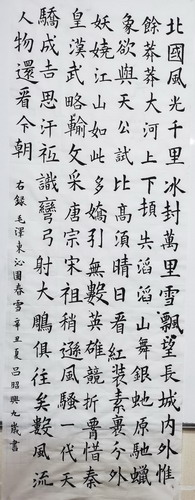 北國風光千里冰封萬里雪飄望長城內外惟
餘莽莽大河上下頓失滔滔山舞銀蛇原馳蠟
象欲與天公試比高須晴日看紅裝素裹分外
妖嬈江山如此多嬌引無數英雄競折腰惜秦
皇漢武略輸文采唐宗宋祖稍遜風騷一代天
驕成吉思汗祗識彎弓射大鵰俱往矣數風流
人物還看今朝
右錄毛澤東沁園春雪辛丑夏呂昭興九歲書